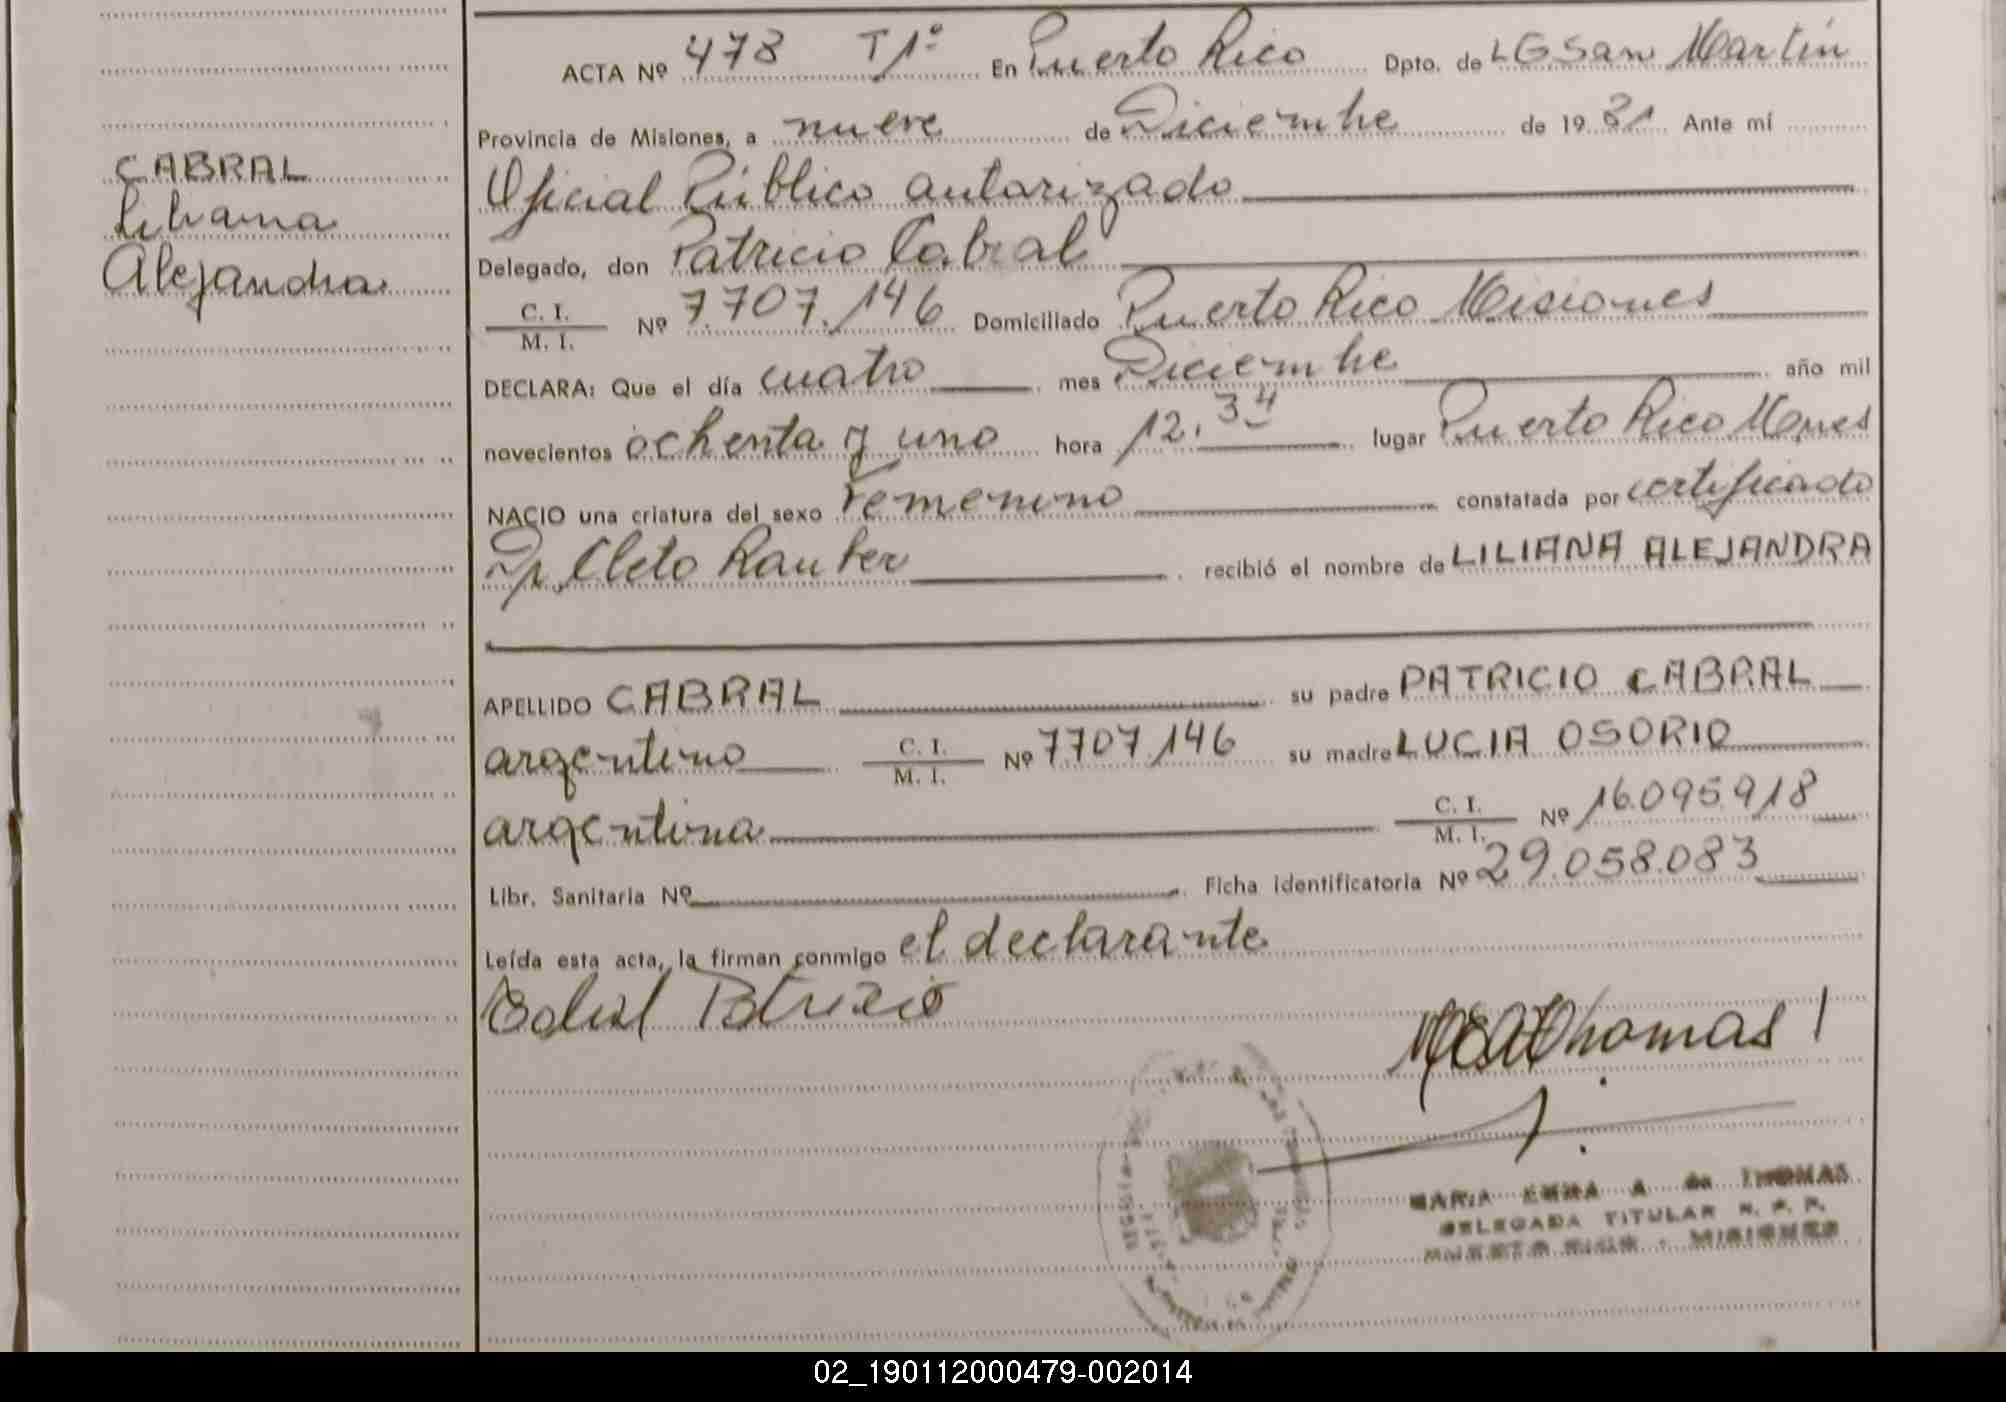 ACTA Nº 478 T 1º En Puerto Rico Dpto. de LG San Martín
Provincia de Misiones, a nueve de Diciembre de 1981 Ante mí
CABRAL
Liliana
Alejandra
Oficial Público autorizado
Delegado, don Patricio Cabral
C. I.
M. I.
Nº 7.707.146 Domiciliado Puerto Rico Misiones
DECLARA: Que el día cuatro mes Diciembre año mil
novecientos ochenta y uno hora 12.34 lugar Puerto Rico Mnes
NACIO una criatura del sexo Femenino constatada por certificado
Dr. Cleto Rauber recibió el nombre de LILIANA ALEJANDRA
APELLIDO CABRAL su padre PATRICIO CABRAL
argentino C. I. M. I. Nº 7707.146 su madre LUCIA OSORIO
argentina C. I. M. I. Nº 16.095.918
Libr. Sanitaria Nº Ficha identificatoria Nº 29.058.083
Leída esta acta, la firman conmigo el declarante
Cabral Patricio
Thomas
MARIA EMMA A de THOMAS
DELEGADA TITULAR R. P. P.
PUERTO RICO - MISIONES
02_190112000479-002014